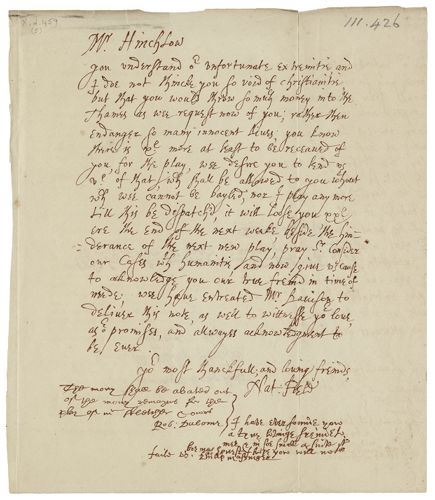 III.426
Mr Hinchlow
you understand or unfortunate extremitie and
I doe not thincke you so void of christianitie
but that you would throw so much money into the
Thames as wee request now of you; rather then
endanger so many innocent liues; you know
there is xl more at least to be receaued of
you, for the play, wee desire you to lend vs
vl of that, wch shall be allowed to you wthout
wch wee cannot be bayled, nor I play any more
till this be dispatch'd, it will loose you xxl
ere the end of the next weeke beside the hin=
derance of the next new play, pray Sr Consider
our Cases wth humanitie, and now giue vs cause
to acknowledge you our true freind in time of
neede; wee haue entreated Mr Dauison to
deliuer this note, as well to wittnesse yr loue,
as or promises, and allwayes acknowledgment to
be euer
yor most thanckfull, and louing freinds,
Nat: Field
The mony shall be abated out
of the mony remayns for the
play of mr Fletcher & ours
Rob: Daborne
I have ever founde you
a true louinge freind to
mee & in soe small a suite
beeinge honest I hope you will not
faile vs. Philip Massinger